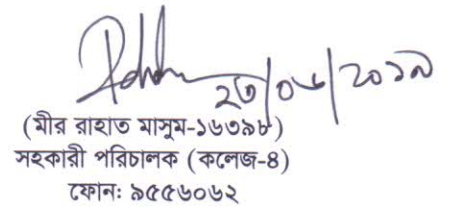 ২৩/০৬/২০১৯
(মীর রাহাত মাসুম-১৬৩৯৮)
সহকারী পরিচালক (কলেজ-৪)
ফোনঃ ৯৫৫৬০৬২